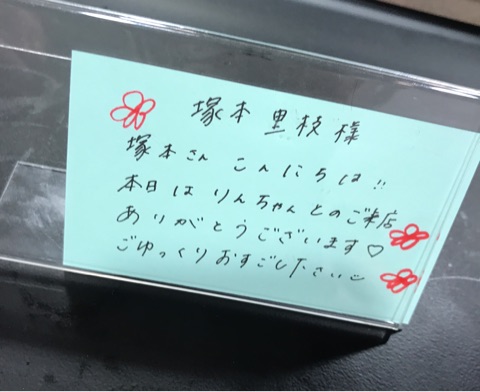 塚本里枝様
塚本さん こんにちは!!
本日は りんちゃんとのご来店
ありがとうございます♡
ごゆっくりおすごしください